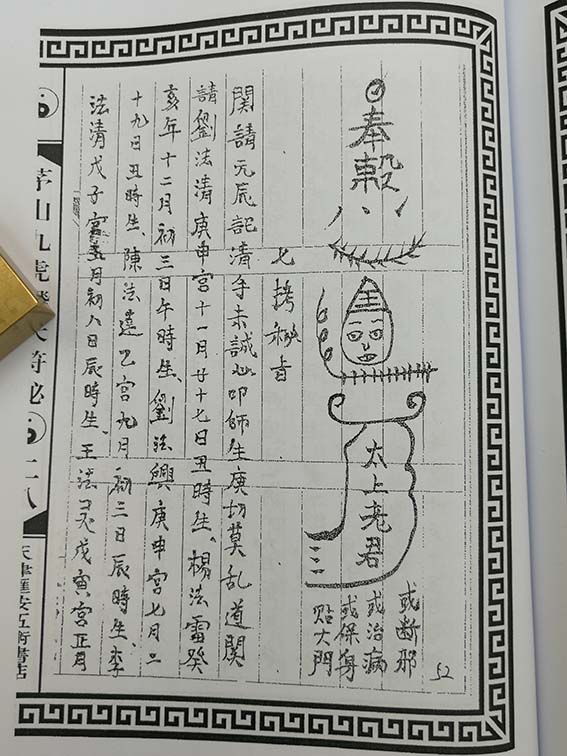 奉
太上老君
或断邪
或治病
或保身
贴大門
52
七拷秘旨
関請元辰記清手未誠心叩師生庚切莫乱道関
請劉法清庚申宮十一月廿十七日丑時生、楊法雷癸
亥年十二月初三日午時生、劉法興庚申宮七月二
十九日丑時生、陳法達乙宮九月初三日辰時生、李
法清戊子宮五月初八日辰時生、王法灵戊寅宮正月
茅山九虎符秘
二八
天津匯安五術書店